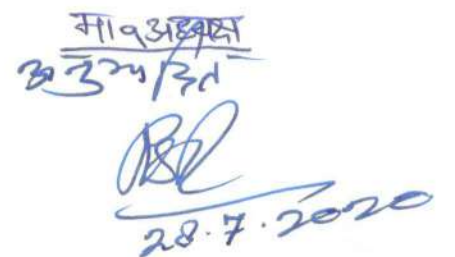 मा॰अध्यक्ष
अनुमोदित
28.7.2020